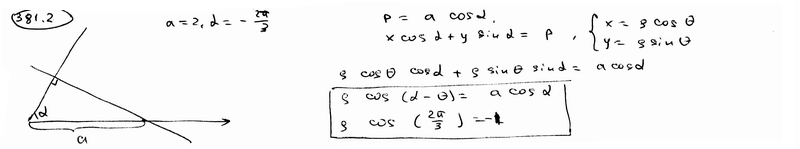 381.2
a = 2, α = - 2π/3
p = a cos α,
x cos α + y sin α = p , { x = ρ cos θ
y = ρ sin θ
ρ cos θ cos α + ρ sin θ sin α = a cos α
ρ cos (α - θ) = a cos α
ρ cos ( 2π/3 ) = -1
α
a